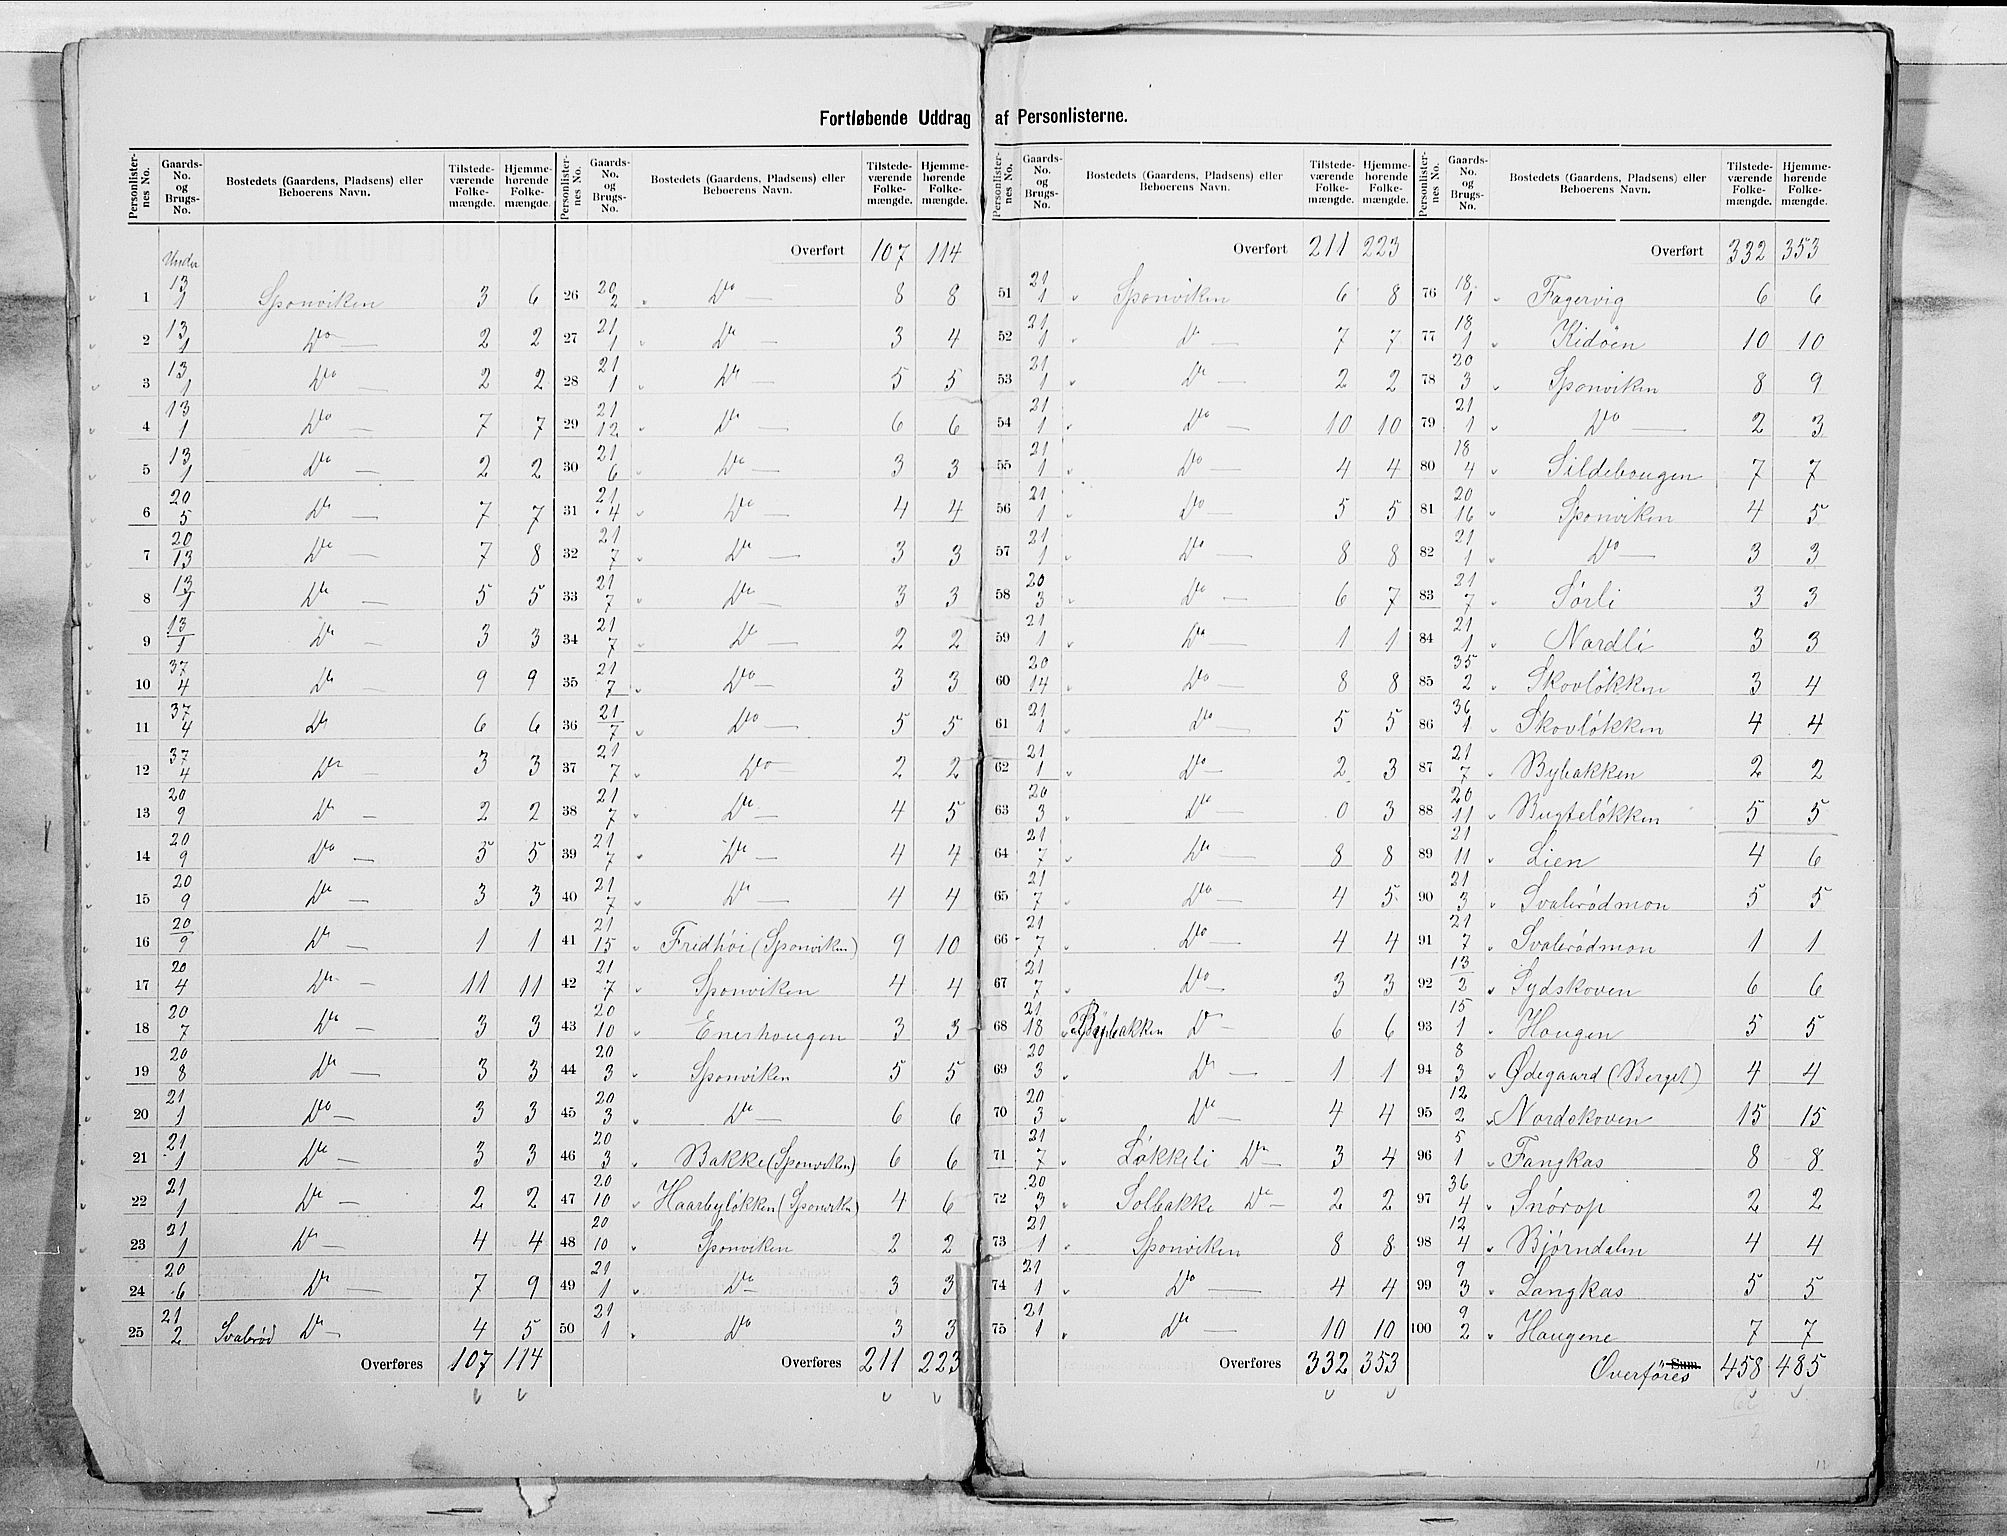 Fortløbende Uddrag af Personlisterne.
Personlister-nes No. | Gaards-No. og Brugs-No. | Bostedets (Gaardens, Pladsens) eller Beboerens Navn. | Tilstede-værende Folke-mængde. | Hjemme-hørende Folke-mængde.
Under
1 13/1 Sponviken 3 6
2 13/1 Do — 2 2
3 13/1 Do — 2 2
4 13/1 Do — 7 7
5 13/1 Do — 2 2
6 20/5 Do — 7 7
7 20/13 Do — 7 8
8 13/1 Do — 5 5
9 13/1 Do — 3 3
10 37/4 Do — 9 9
11 37/4 Do — 6 6
12 37/4 Do — 3 3
13 20/9 Do — 2 2
14 20/9 Do — 5 5
15 20/9 Do — 3 3
16 20/9 Do — 1 1
17 20/4 Do — 11 11
18 20/7 Do — 3 3
19 20/8 Do — 3 3
20 21/1 Do — 3 3
21 21/1 Do — 3 3
22 21/1 Do — 2 2
23 21/1 Do — 4 4
24 20/6 Do — 7 9
25 21/2 Svalerød Do — 4 5
Overføres 107 114
Personlister-nes No. | Gaards-No. og Brugs-No. | Bostedets (Gaardens, Pladsens) eller Beboerens Navn. | Tilstede-værende Folke-mængde. | Hjemme-hørende Folke-mængde.
Overført 107 114
26 20/2 " Do — 8 8
27 21/1 " Do — 3 4
28 21/1 " Do — 5 5
29 21/12 " Do — 6 6
30 21/6 " Do — 3 3
31 21/4 " Do — 4 4
32 21/7 " Do — 3 3
33 21/7 " Do — 3 3
34 21/7 " Do — 2 2
35 21/7 " Do — 3 3
36 21/7 " Do — 5 5
37 21/7 " Do — 2 2
38 21/7 " Do — 4 5
39 21/7 " Do — 4 4
40 21/7 " Do — 4 4
41 21/15 " Fridhöi (Sponviken) 9 10
42 21/7 " Sponviken 4 4
43 20/10 " Enerhougen 3 3
44 20/3 " Sponviken 5 5
45 20/3 " Do — 6 6
46 20/3 " Bakke (Sponviken) 6 6
47 20/10 " Haarbyløkken (Sponvik) 4 6
48 20/10 " Sponviken 2 2
49 21/1 " Do — 3 3
50 21/1 " Do 3 3
Overføres 211 223
Personlister-nes No. | Gaards-No. og Brugs-No. | Bostedets (Gaardens, Pladsens) eller Beboerens Navn. | Tilstede-værende Folke-mængde. | Hjemme-hørende Folke-mængde.
Overført 211 223
51 21/1 " Sponviken 6 8
52 21/1 " Do — 7 7
53 21/1 " Do — 2 2
54 21/1 " Do — 10 10
55 21/1 " Do — 4 4
56 21/1 " Do — 5 5
57 21/1 " Do — 8 8
58 20/3 " Do — 6 7
59 21/1 " Do — 1 1
60 20/14 " Do — 8 8
61 21/1 " Do — 5 5
62 21/1 " Do — 2 3
63 20/3 " Do — 0 3
64 21/7 " Do — 8 8
65 21/7 " Do — 4 5
66 21/7 " Do — 4 4
67 21/7 " Do — 3 3
68 21/18 " Bybakken Do — 6 6
69 20/3 " Do — 1 1
70 20/3 " Do — 4 4
71 21/7 " Løkkeli Do — 3 4
72 20/3 " Solbakke Do — 2 2
73 21/1 " Sponviken 8 8
74 21/1 " Do — 4 4
75 21/1 " Do — 10 10
Overføres 332 353
Personlister-nes No. | Gaards-No. og Brugs-No. | Bostedets (Gaardens, Pladsens) eller Beboerens Navn. | Tilstede-værende Folke-mængde. | Hjemme-hørende Folke-mængde.
Overført 332 353
76 18/1 " Fagervig 6 6
77 18/1 " Kidöen 10 10
78 20/3 " Sponviken 8 9
79 21/1 " Do — 2 3
80 18/4 " Sildebougen 7 7
81 20/16 " Sponviken 4 5
82 21/1 " Do — 3 3
83 21/7 " Sørli 3 3
84 21/1 " Nordli 3 3
85 35/2 " Skovløkken 3 4
86 36/1 " Skovløkken 4 4
87 21/7 " Bybakken 2 2
88 20/11 " Bugteløkken 5 5
89 21/11 " Lien 4 6
90 21/3 " Svalerødmon 5 5
91 21/7 " Svalerødmon 1 1
92 13/2 " Sydskoven 6 6
93 15/1 " Hougen 5 5
94 8/3 " Ødegaard (Berget) 4 4
95 12/2 " Nordskoven 15 15
96 5/1 " Fangkas 8 8
97 36/4 " Snørop 2 2
98 12/4 " Bjørndalen 4 4
99 9/3 " Langkas 5 5
100 9/2 " Hougene 7 7
Sum. Overføres 458 485